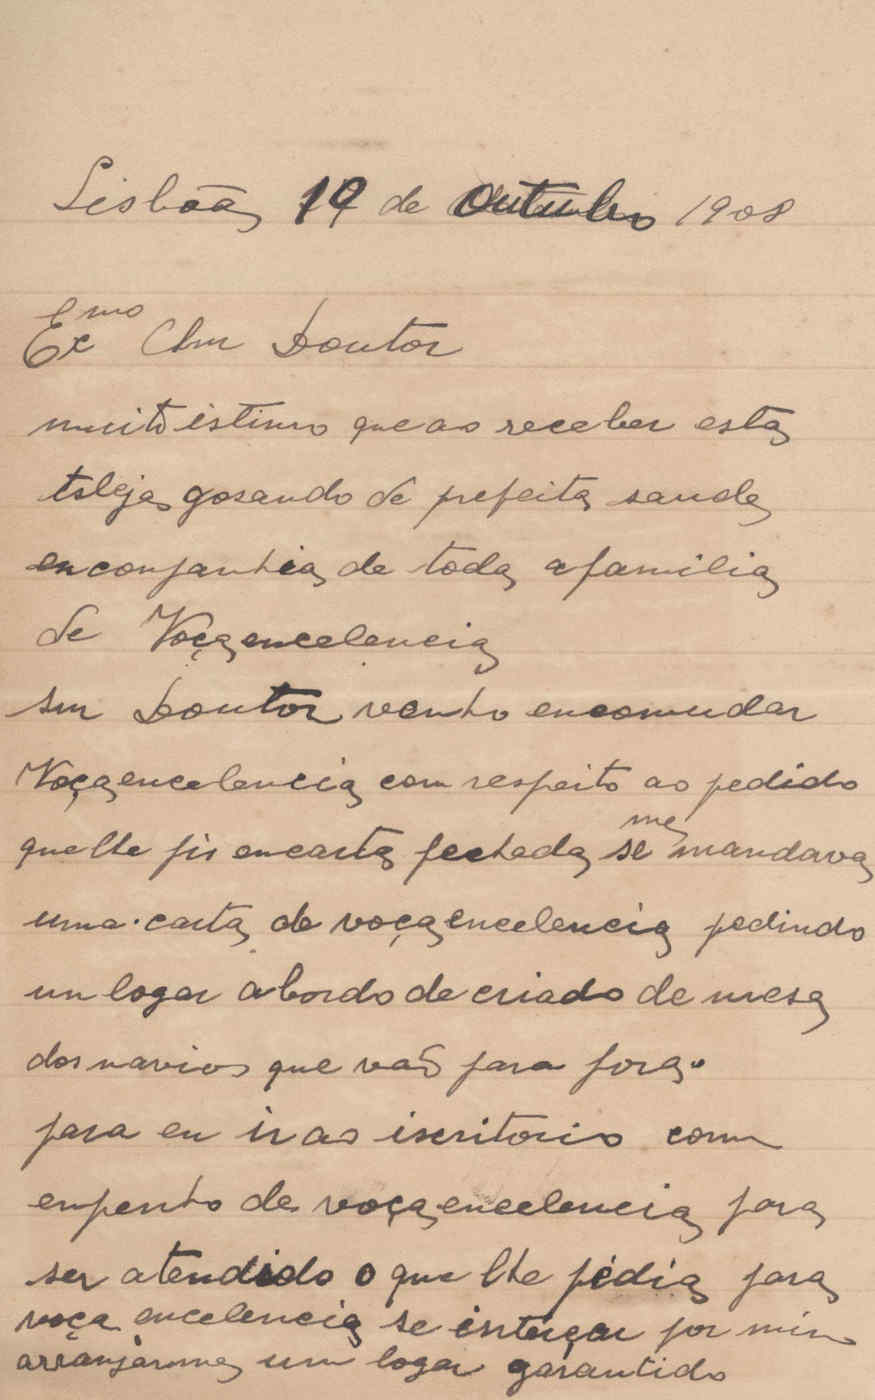 Lisboa 19 de Outubro 1908
Exmo Snr Doutor
muito istimo que ao receber esta
esteja gosando de prefeita saude
en conpanhia de toda a familia
de Voça encelencia
snr Doutor venho encomudar
Voça encelencia com respeito ao pedido
que lhe fis en carta fechada se me mandava
uma carta de voça encelencia pedindo
un logar a bordo de criado de mesa
dos navios que vaõ para fora.
para eu ir ao iscritorio com
enpenho de voça encelencia para
ser atendido o que lhe pédia para
voça encelencia se interçar por min
arranjarme um logar garantido